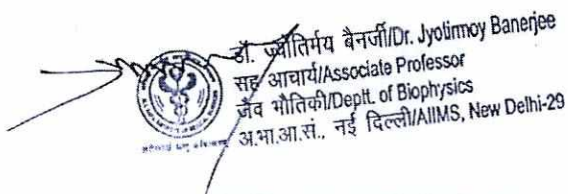 डॉ. ज्योतिर्मय बैनर्जी/Dr. Jyotirmoy Banerjee
सह आचार्य/Associate Professor
जैव भौतिकी/Deptt. of Biophysics
अ.भा.आ.सं., नई दिल्ली/AIIMS, New Delhi-29